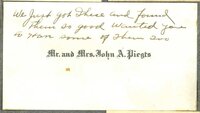 We Just got These and found
Them so good wanted you
to have some of them too
Mr. and Mrs. John A. Piegts